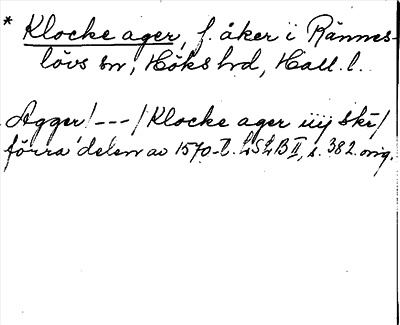 * Klocke ager, f. åker i Rännes-
lövs sn, Höks hd, Hall. l.
Agger/---/Klocke ager iiij skr/
förra delen av 1570-t. LSLB II, s. 382. orig.